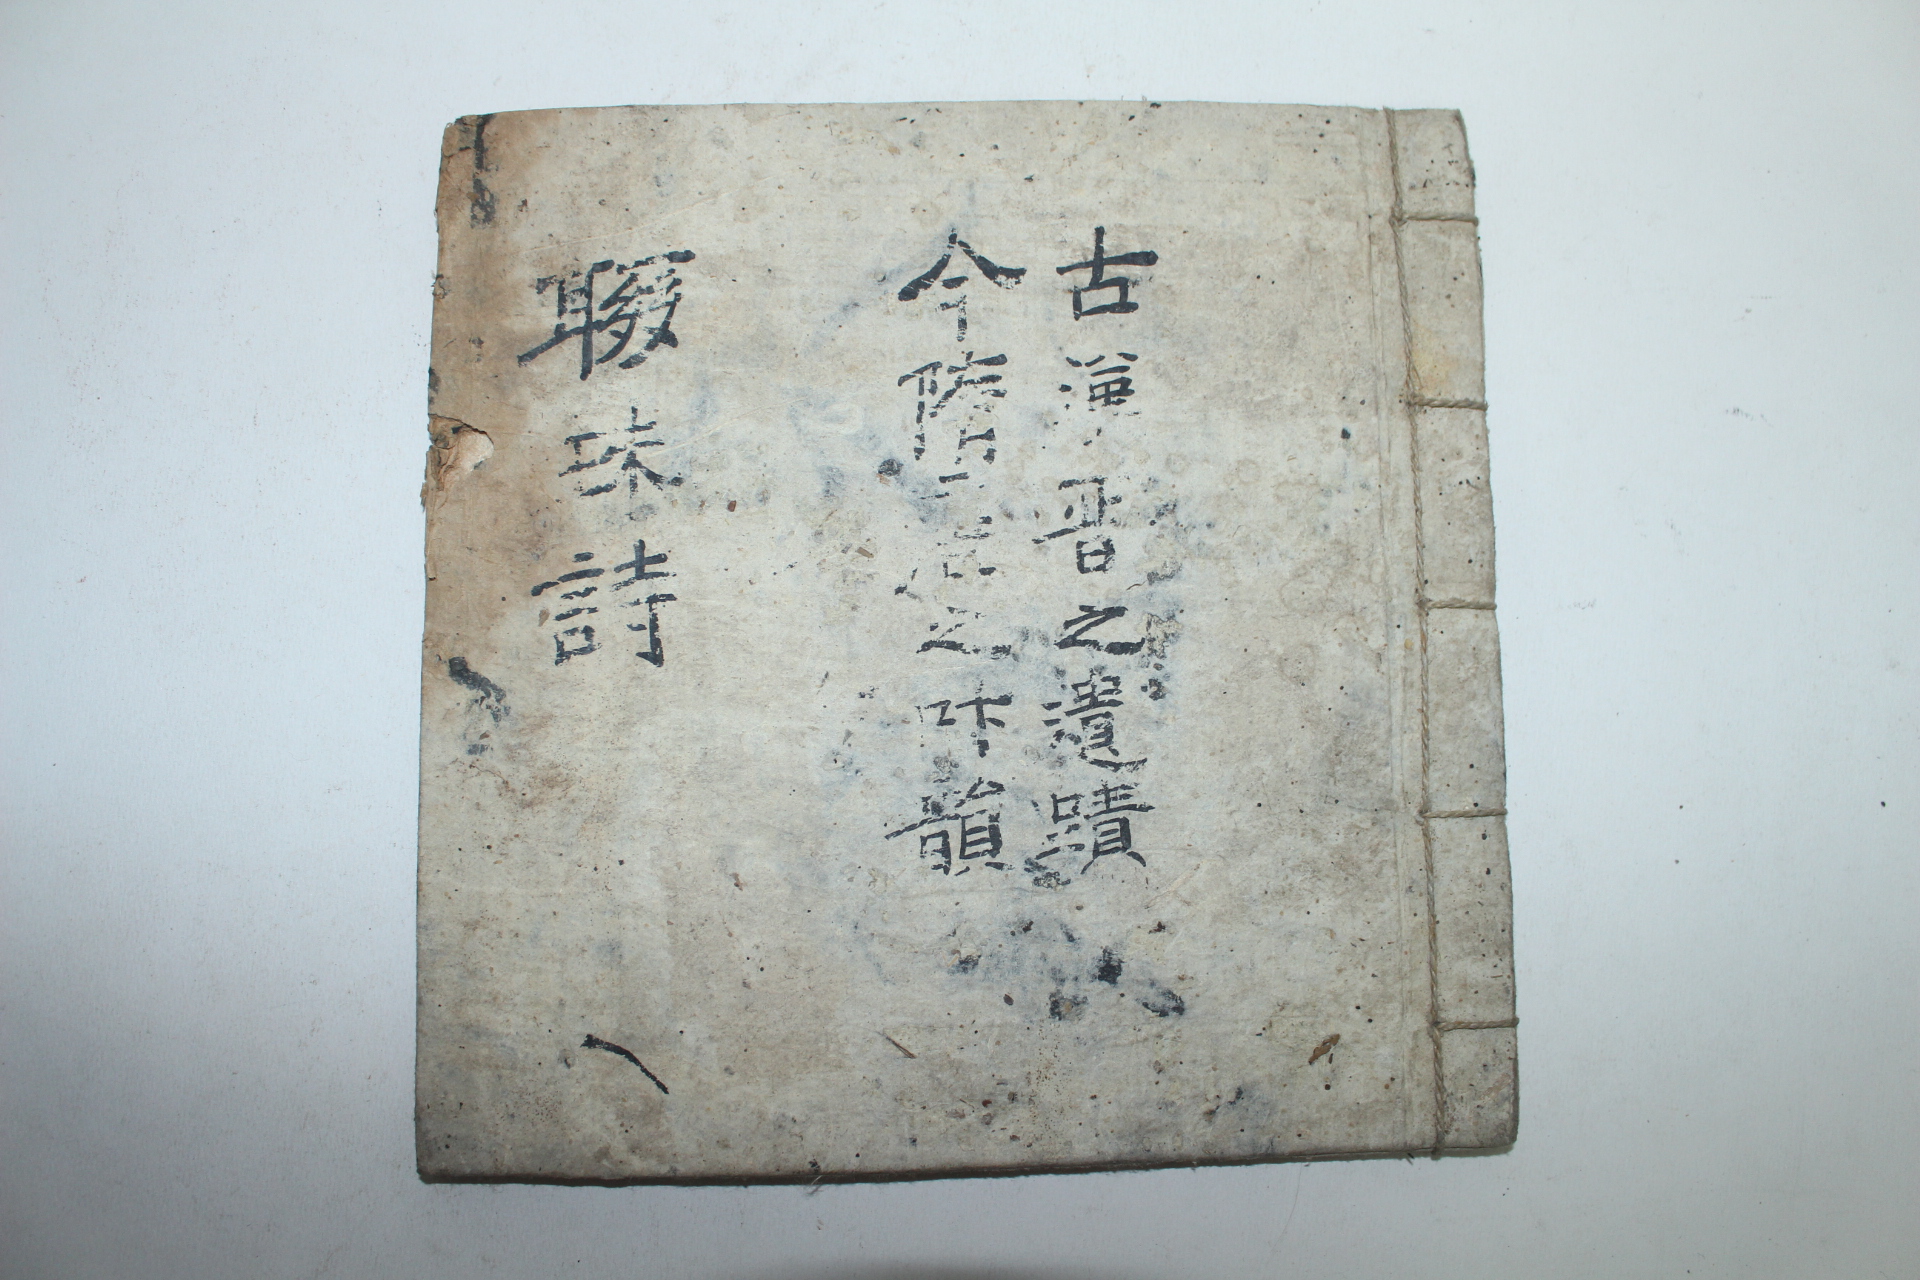 古漢晉之遺蹟
今隋唐之叶韻
聯珠詩